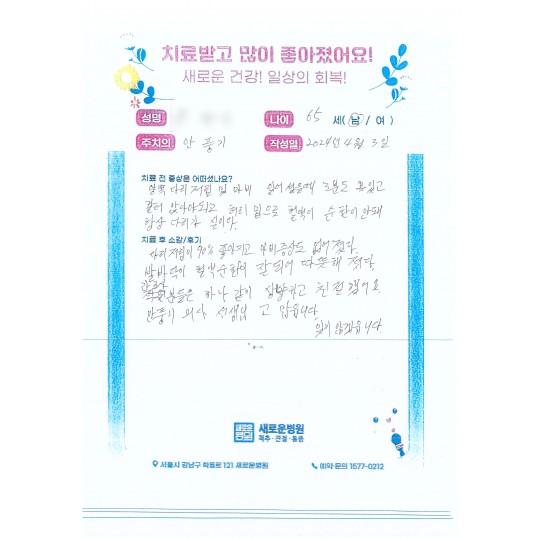 치료받고 많이 좋아졌어요!
새로운 건강! 일상의 회복!
성명
나이 65 세( 남 / 여 )
주치의 안풍기
작성일 2024년 4월 3일
치료 전 증상은 어떠셨나요?
양쪽 다리저림 및 마비 있어 섰을때 힘도 없고
걷다 앉아야되고 허리 밑으로 혈액이 순환이 안돼
항상 다리가 시리다.
치료 후 소감/후기
다리저림이 90% 좋아지고 마비증상도 없어졌다.
발바닥이 혈액순환이 잘되어 따뜻해졌다.
간호사
직원분들은 하나 같이 상냥하고 친절했어요
안풍기 의사 선생님 고맙습니다
잊지 않겠습니다.
새로운병원
척추·관절·통증
서울시 강남구 학동로 121 새로운병원
예약·문의 1577-0212